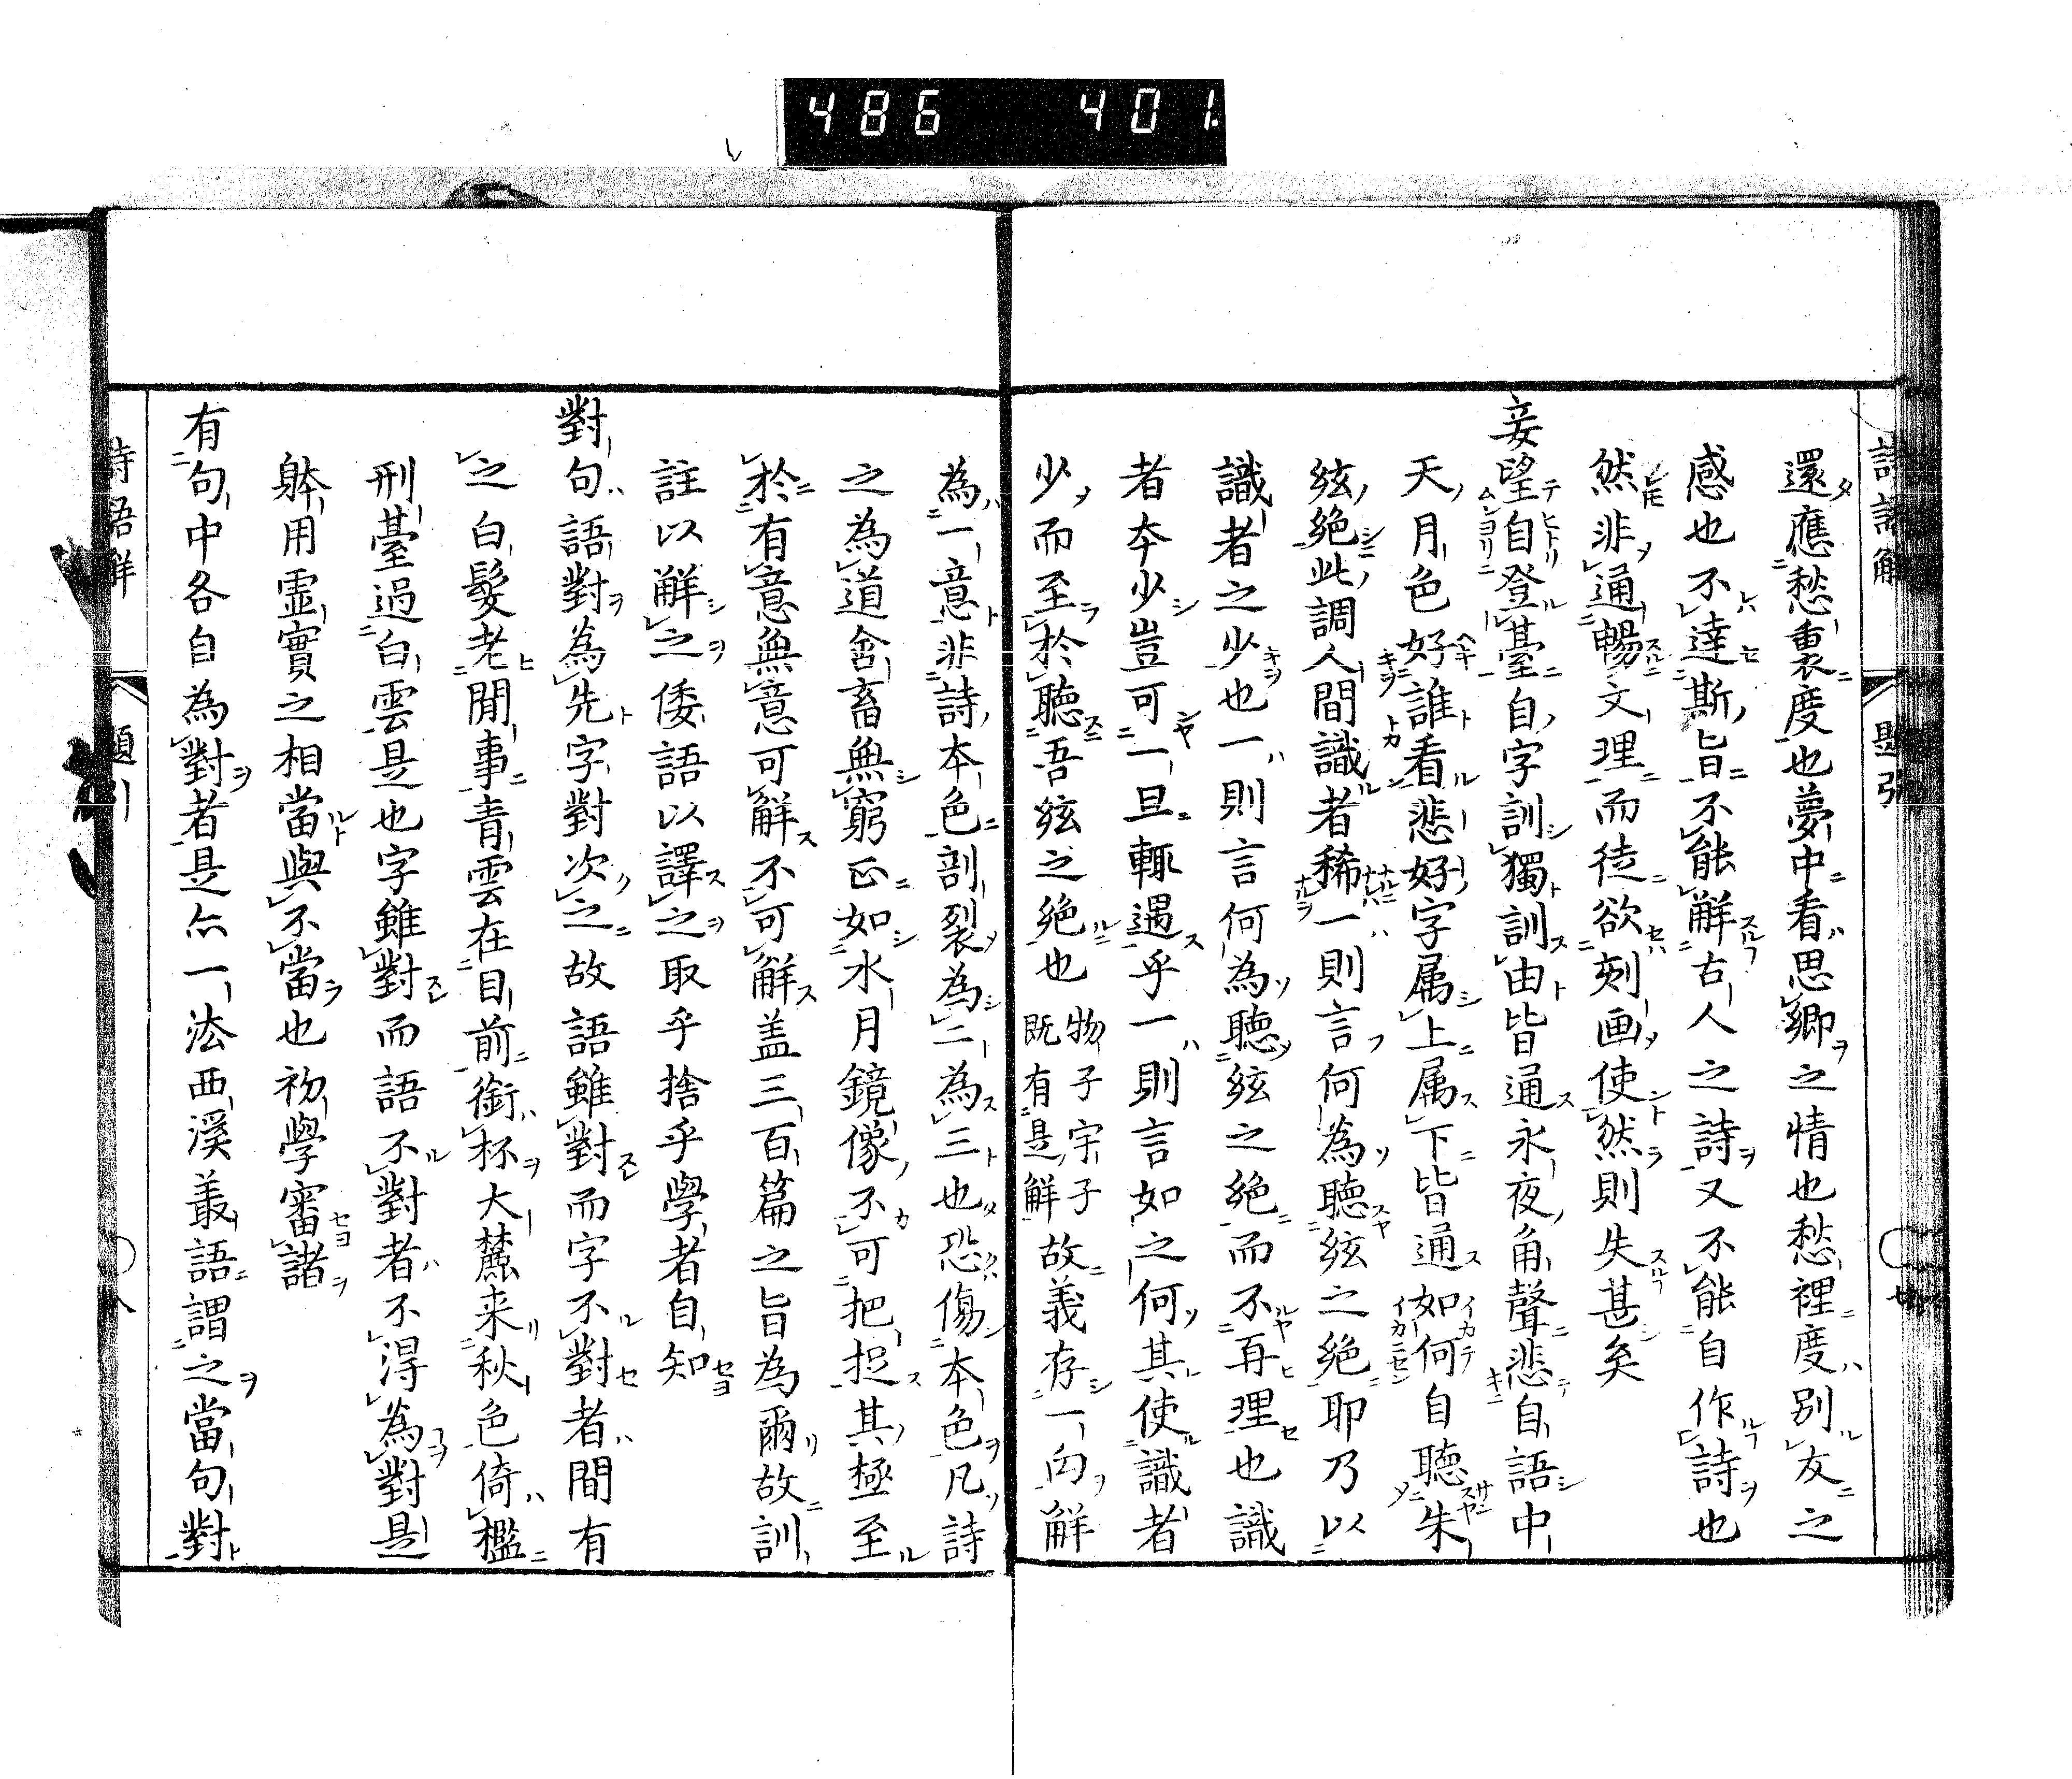 486 401
詩語解 題引
還應愁裏度也夢中看思鄉之情也愁裡度別友之
感也不達斯旨不能解古人之詩又不能自作詩也
然非通暢文理而徒欲刻画使然則失甚矣
妄望自登臺自字訓獨訓由皆通永夜角聲悲自語中
天月色好誰看悲好字属上属下皆通如何自聴朱
絃絶此調人間識者稀一則言何為聴絃之絶耶乃以
識者之少也一則言何為聴絃之絶而不再理也識
者本少豈可一旦輒遇乎一則言如之何其使識者
少而至於聴吾絃之絶也物子宇子既有是解故義存一向解
為一意非詩本色剖裂為二為三也恐傷本色凡詩
之為道含畜無窮正如水月鏡像不可把捉其極至
於有意無意可解不可解盖三百篇之旨為爾故訓
註以解之倭語以譯之取乎捨乎學者自知
對句語對為先字對次之故語雖對而字不對者間有
之白髮老閒事青雲在目前銜杯大麓来秋色倚檻
刑臺過白雲是也字雖對而語不對者不得為對是
躰用霊實之相當與不當也初學審諸
有句中各自為對者是亦一法西溪叢語謂之當句對
詩語解 題引 八